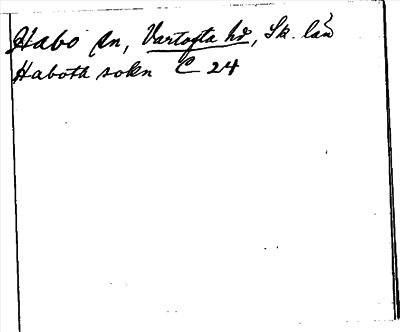 Habo sn, Vartofta hd, Sk. län
Habotk sokn C 24